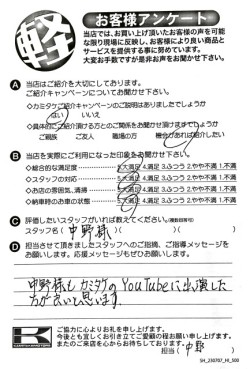 軽
お客様アンケート
当店では、お買い上げ頂いたお客様の声を可能
な限り現場に反映し、お客様により良い商品と
サービスを提供する事に努めています。
大変お手数ですが是非お声をお聞かせ下さい。
A 当店はご紹介を大切にしております。
ご紹介キャンペーンについてお聞かせ下さい。
◇カミタケご紹介キャンペーンのご説明はありましたでしょうか
はい いいえ
◇具体的にご紹介頂ける方とのご関係をお聞かせ頂けますでしょうか
ご親族 ご友人 職場の方 機会があれば紹介したい
B 当店を実際にご利用になった印象をお聞かせ下さい。
◇総合的な満足度 5.大満足 4.満足 3.ふつう 2.やや不満 1.不満
◇スタッフの対応 5.大満足 4.満足 3.ふつう 2.やや不満 1.不満
◇お店の雰囲気、清掃 5.大満足 4.満足 3.ふつう 2.やや不満 1.不満
◇納車時のお車の状態 5.大満足 4.満足 3.ふつう 2.やや不満 1.不満
C 評価したいスタッフがいれば教えてください。(複数回答可)
スタッフ名( 中野様 )( )( )
D 担当させて頂きましたスタッフへのご指摘、ご指導メッセージを
お願いします。応援メッセージもぜひお願いします。
中野様もカミタケのYouTubeに出演した
方がよいと思います。
ご協力に心よりお礼を申し上げます。
今後とも宜しくお引き立てご愛顧の程お願い申し上げます。
またのご来店を心からお待ちしております。
担当( 中野 )
SH_230707_HI_500